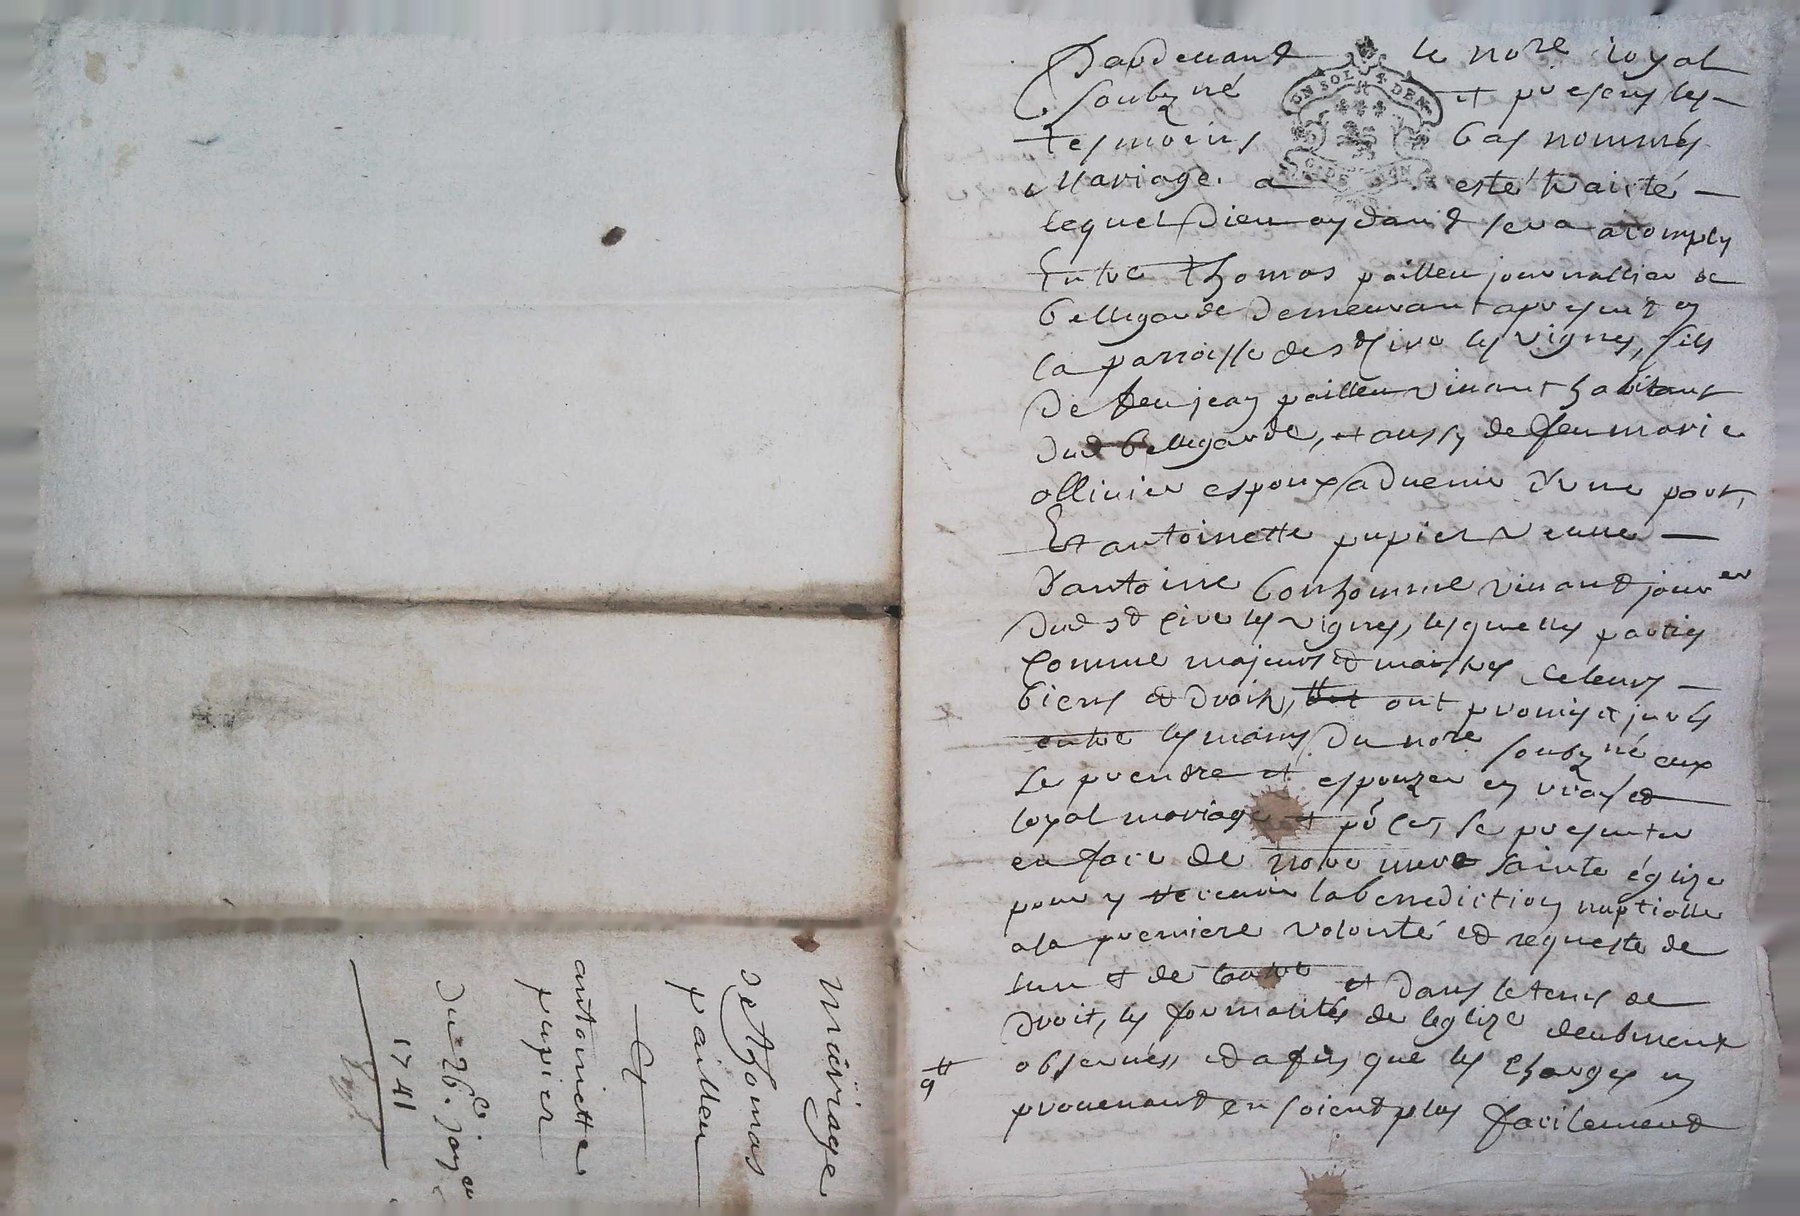 mariage
de thomas
pailleu
Et
antoinette
pupier
du 26e janer
1741
Pardevant le nore royal
soubzné et presens les
tesmoins bas nommés
Mariage a esté traité
lequel Dieu aydant sera acomply
Entre thomas pailleu journallier de
bellegarde demeurant apresent en
la parroisse de st Cire les vignes, fils
de feu jean pailleu vivant habitant
dud bellegarde, et aussy de feu marie
ollivier espoux advenir d'une part,
Et antoinette pupier veuve
d'antoine bonhomme vivant jourer
dud st Cire les vignes, lesquelles parties
Comme majeurs et maistres de leurs
biens et droits, ont promis et jurés
entre les mains du nore soubzné eux
se prendre et espouzer en vray et
loyal mariage et pour ce, se presenter
en face de notre mere sainte églize
pour y recevoir la benediction nuptialle
a la premiere volonté et requeste de
lun et de lautre et dans le tems de
droit, les formalités de leglize deubment
observés et afin que les charges en
provenant en soient plus facilement